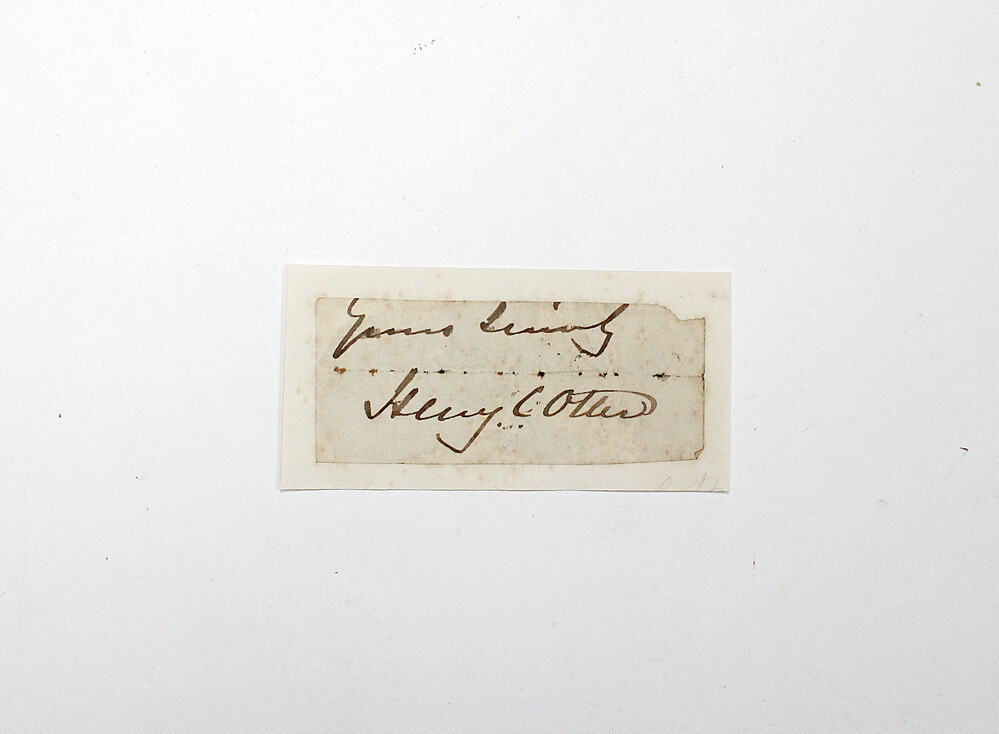 Yours Sincerely
Henry C Otter